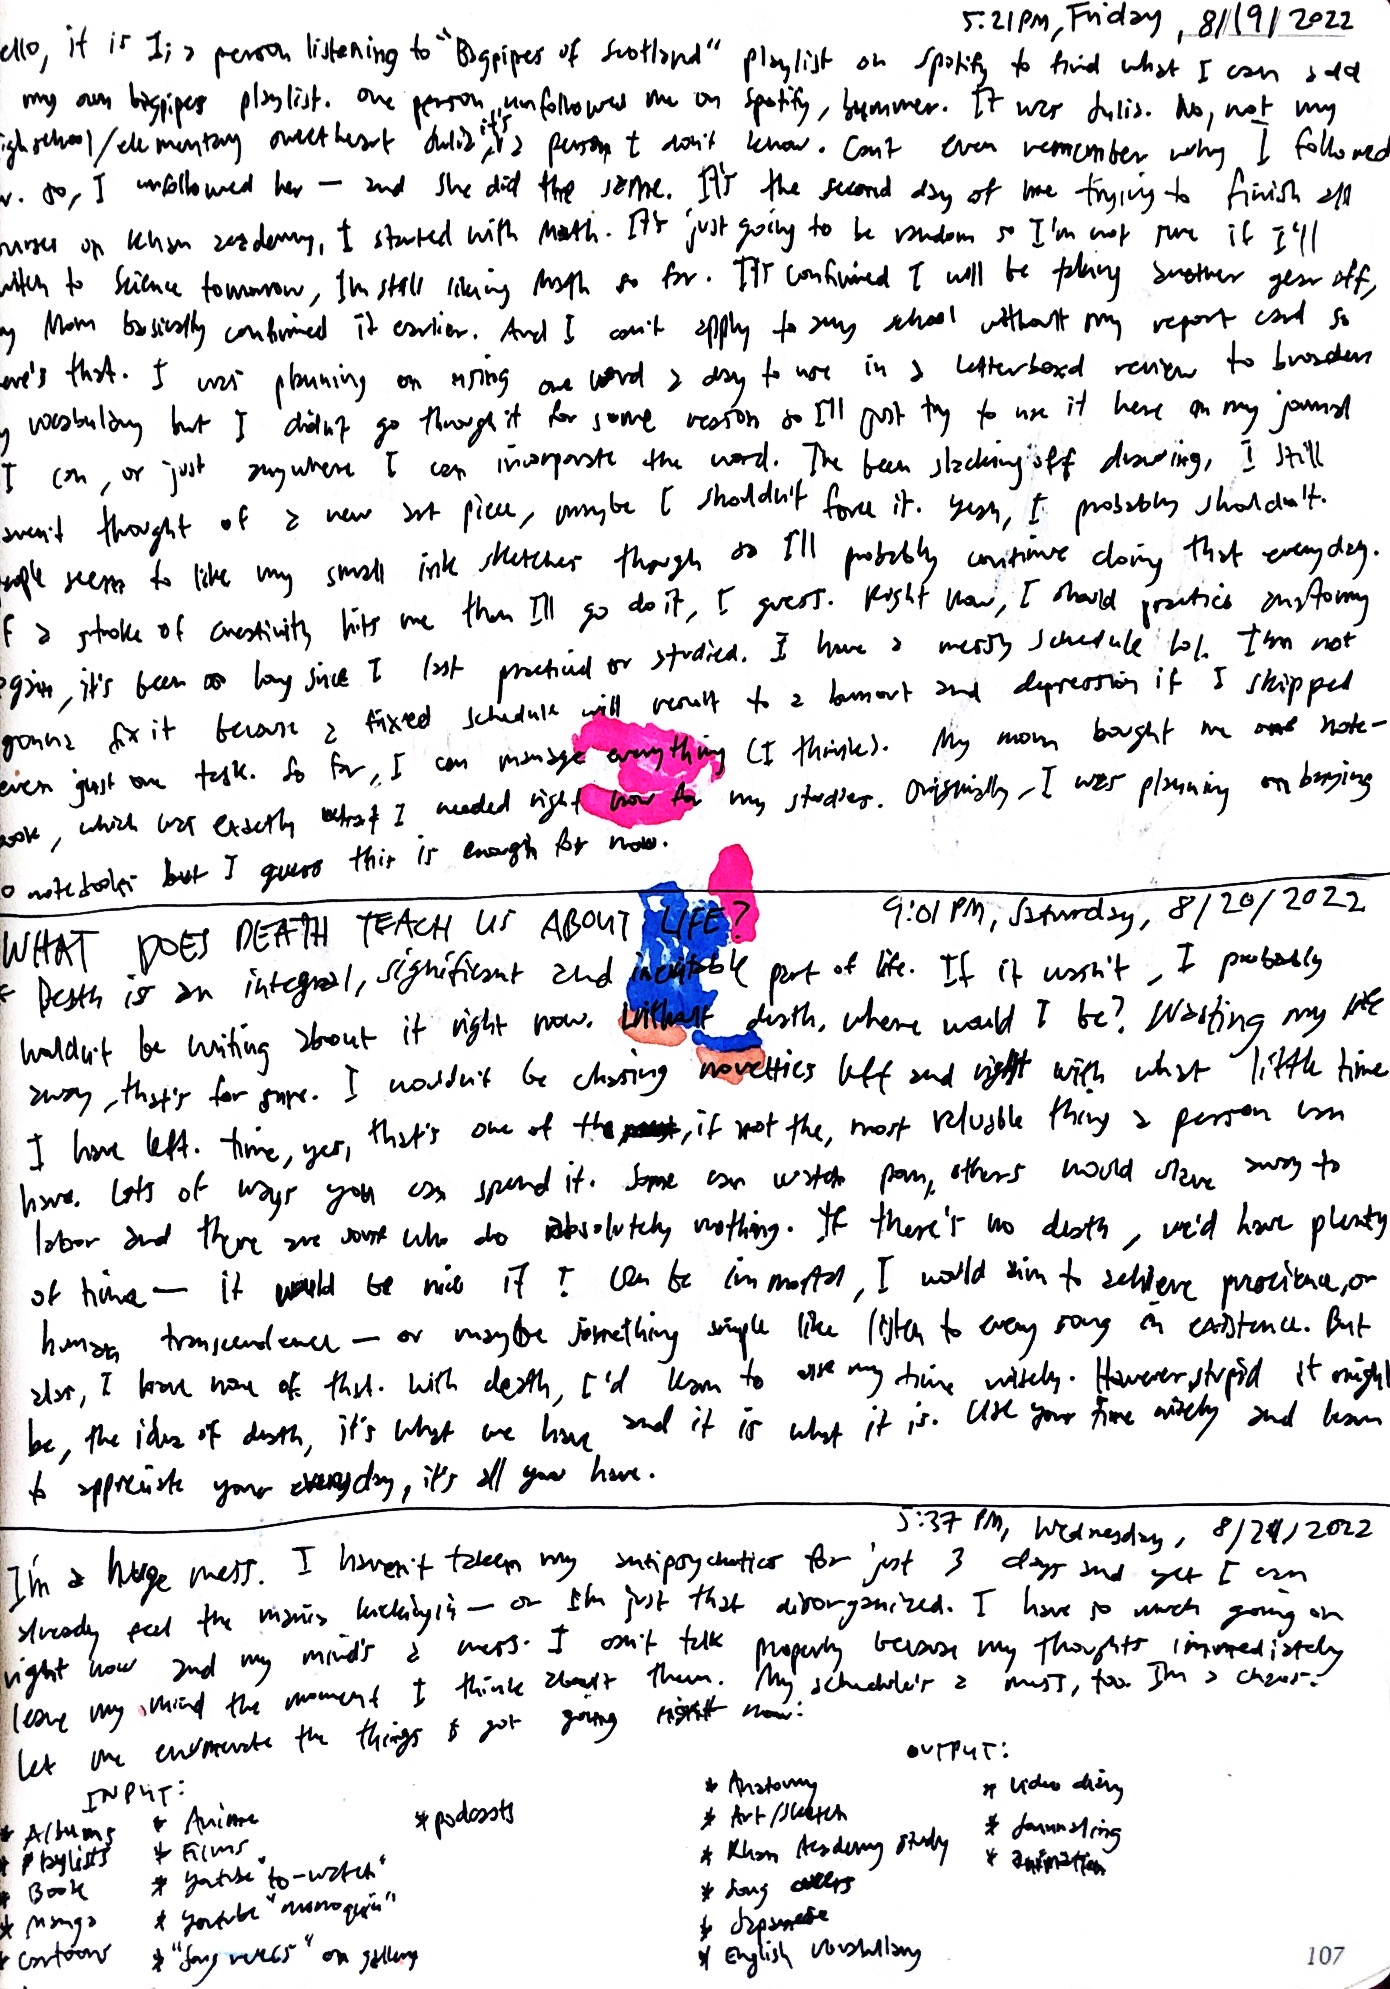 5:21PM, Friday, 8/19/2022
ello, it is I; a person listening to "Bagpipes of Scotland" playlist on spotify to find what I can add
my own bagpipes playlist. One person unfollowed me on Spotify, bummer. It was Julia. No, not my
ighschool/elementary sweetheart Julia, it's a person I don't know. Can't even remember why I followed
r. so, I unfollowed her — and she did the same. It's the second day of me trying to finish all
urses on Khan academy, I started with Math. It's just going to be random so I'm not sure if I'll
witch to Science tomorrow, I'm still liking Math so far. It's confirmed I will be taking another year off,
y Mom basically confirmed it earlier. And I can't apply to any school without my report card so
ere's that. I was planning on using one word a day to use in a Letterboxd review to broaden
y vocabulary but I didn't go through it for some reason so I'll just try to use it here on my journal
I can, or just anywhere I can incorporate the word. I've been slacking off drawing, I still
aven't thought of a new art piece, maybe I shouldn't force it. Yeah, I probably shouldn't.
eople seem to like my small ink sketches though so I'll probably continue doing that everyday.
f a stroke of creativity hits me then I'll go do it, I guess. Right now, I should practice anatomy
again, it's been so long since I last practiced or studied. I have a messy schedule lol. I'm not
gonna fix it because a fixed schedule will result to a burnout and depression if I skipped
even just one task. So far, I can manage everything (I think). My mom bought me one note-
ook, which was exactly what I needed right now for my studies. Originally, I was planning on buying
o notebooks but I guess this is enough for now.
9:01 PM, Saturday, 8/20/2022
WHAT DOES DEATH TEACH US ABOUT LIFE?
Death is an integral, significant and inevitable part of life. If it wasn't, I probably
wouldn't be writing about it right now. Without death, where would I be? Wasting my life
away, that's for sure. I wouldn't be chasing novelties left and right with what little time
I have left. Time, yes, that's one of the, if not the, most valuable thing a person can
have. Lots of ways you can spend it. Some can watch, others would slave away to
labor and there are some who do absolutely nothing. If there's no death, we'd have plenty
of time — it would be nice if I can be immortal, I would aim to achieve prescience, or
human transcendence — or maybe something simple like listen to every song in existence. But
alas, I have none of that. With death, I'd learn to use my time wisely. However stupid it might
be, the idea of death, it's what we have and it is what it is. Use your time wisely and learn
to appreciate your everyday, it's all you have.
5:37 PM, Wednesday, 8/24/2022
I'm a huge mess. I haven't taken my antipsychotics for just 3 days and yet I can
already feel the mania kicking in — or I'm just that disorganized. I have so much going on
right now and my mind's a mess. I can't talk properly because my thoughts immediately
leave my mind the moment I think about them. My schedule's a mess, too. I'm a chaos.
Let me enumerate the things I got going right now:
INPUT:
* Albums
* Playlists
* Book
* Manga
* Cartoons
* Anime
* Films
* Youtube "to-watch"
* Youtube
* on gallery
* podcasts
OUTPUT:
* Anatomy
* Art/Sketch
* Khan Academy study
* Song covers
* Japanese
* English vocabulary
* Video diary
* Journaling
* animation
107